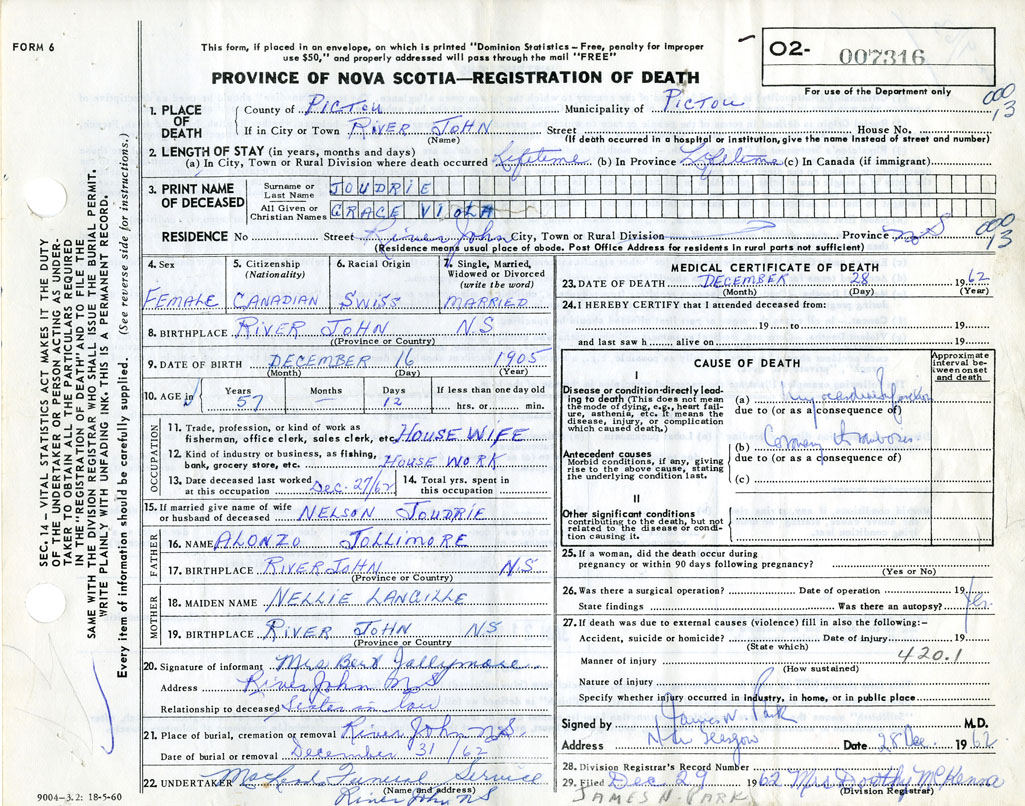 FORM 6
This form, if placed in an envelope, on which is printed "Dominion Statistics – Free, penalty for improper
use $50," and properly addressed will pass through the mail "FREE"
PROVINCE OF NOVA SCOTIA—REGISTRATION OF DEATH
O2- 007316
For use of the Department only
000
13
1. PLACE OF DEATH
County of PICTOU Municipality of PICTOU
If in City or Town RIVER JOHN Street House No.
(Name) (If death occurred in a hospital or institution, give the name instead of street and number)
2. LENGTH OF STAY (in years, months and days)
(a) In City, Town or Rural Division where death occurred Lifetime (b) In Province Lifetime (c) In Canada (if immigrant)
3. PRINT NAME OF DECEASED
Surname or Last Name JOUDRIE
All Given or Christian Names GRACE VIOLA
RESIDENCE No Street River John City, Town or Rural Division Province NS
000
13
(Residence means usual place of abode. Post Office Address for residents in rural parts not sufficient)
4. Sex
FEMALE
5. Citizenship (Nationality)
CANADIAN
6. Racial Origin
SWISS
7. Single, Married, Widowed or Divorced (write the word)
MARRIED
8. BIRTHPLACE RIVER JOHN NS
(Province or Country)
9. DATE OF BIRTH DECEMBER 16 1905
(Month) (Day) (Year)
10. AGE in Years Months Days If less than one day old
57 — 12 hrs. or min.
OCCUPATION
11. Trade, profession, or kind of work as
fisherman, office clerk, sales clerk, etc. HOUSE WIFE
12. Kind of industry or business, as fishing,
bank, grocery store, etc. HOUSE WORK
13. Date deceased last worked at this occupation Dec. 27/62
14. Total yrs. spent in this occupation
15. If married give name of wife
or husband of deceased NELSON JOUDRIE
FATHER
16. NAME ALONZO JOLLIMORE
17. BIRTHPLACE RIVER JOHN NS
(Province or Country)
MOTHER
18. MAIDEN NAME NELLIE LANGILLE
19. BIRTHPLACE RIVER JOHN NS
(Province or Country)
20. Signature of informant Mrs Bert Jollymore
Address River John NS
Relationship to deceased Sister in law
21. Place of burial, cremation or removal River John NS
Date of burial or removal December 31/62
22. UNDERTAKER MacLeod Funeral Service
(Name and address)
River John NS
9004–3.2: 18-5-60
MEDICAL CERTIFICATE OF DEATH
23. DATE OF DEATH DECEMBER 28 1962
(Month) (Day) (Year)
24. I HEREBY CERTIFY that I attended deceased from:
19 to 19
and last saw h alive on 19
CAUSE OF DEATH
Approximate interval between onset and death
I
Disease or condition directly leading to death (This does not mean the mode of dying, e.g., heart failure, asthenia, etc. It means the disease, injury, or complication which caused death.)
(a) Myocardial Infarction
due to (or as a consequence of)
Antecedent causes
Morbid conditions, if any, giving rise to the above cause, stating the underlying condition last.
(b) Coronary thrombosis
due to (or as a consequence of)
(c)
II
Other significant conditions
contributing to the death, but not related to the disease or condition causing it.
25. If a woman, did the death occur during
pregnancy or within 90 days following pregnancy?
(Yes or No)
26. Was there a surgical operation? Date of operation 19
State findings Was there an autopsy? Yes.
27. If death was due to external causes (violence) fill in also the following:–
Accident, suicide or homicide? Date of injury 19
(State which)
420.1
Manner of injury
(How sustained)
Nature of injury
Specify whether injury occurred in industry, in home, or in public place
Signed by James N. Park M.D.
Address New Glasgow Date 28 Dec. 1962
28. Division Registrar's Record Number
29. Filed Dec 29 1962 Mrs Dorothy McKenna
(Division Registrar)
JAMES N. PARK
SEC. 14 – VITAL STATISTICS ACT MAKES IT THE DUTY
OF THE UNDERTAKER OR PERSON ACTING AS UNDER-
TAKER TO OBTAIN ALL THE PARTICULARS REQUIRED
IN THE "REGISTRATION OF DEATH" AND TO FILE THE
SAME WITH THE DIVISION REGISTRAR WHO SHALL ISSUE THE BURIAL PERMIT.
WRITE PLAINLY WITH UNFADING INK. THIS IS A PERMANENT RECORD.
Every item of information should be carefully supplied. (See reverse side for instructions.)